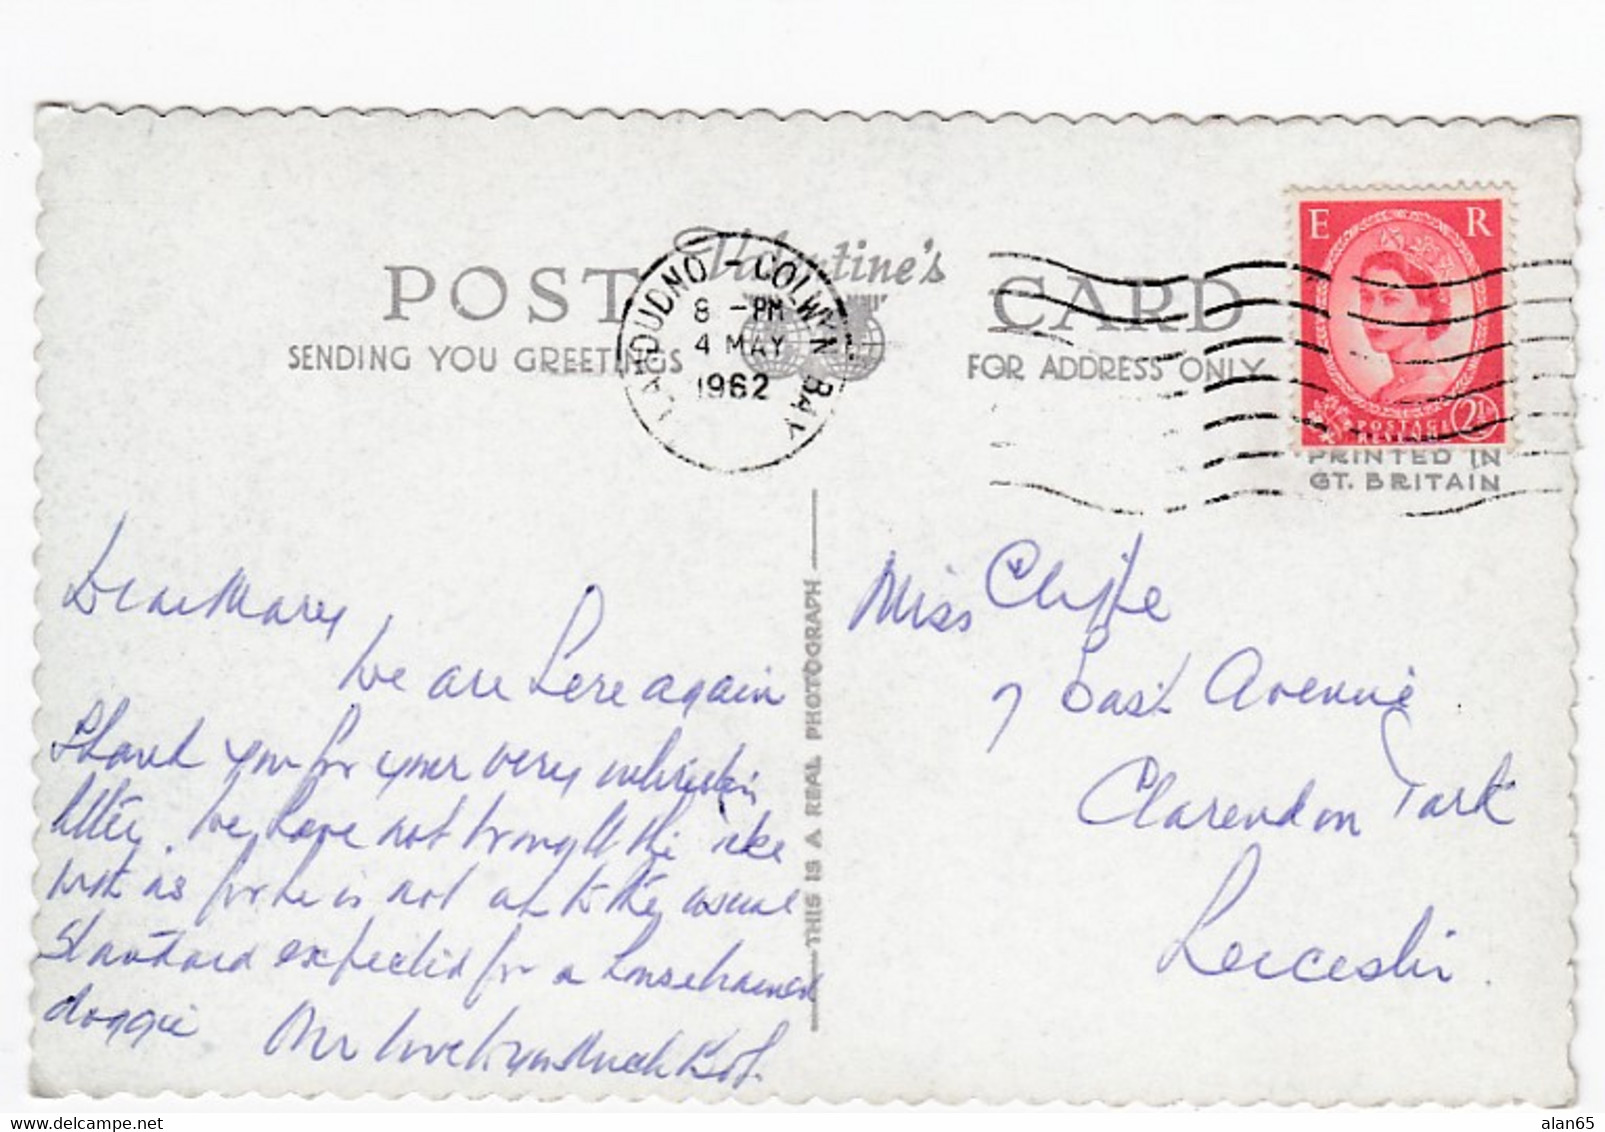 POST
Valentine's
CARD
SENDING YOU GREETINGS
FOR ADDRESS ONLY
LLANDUDNO - COLWYN BAY
8 - PM
4 MAY
1962
E R
POSTAGE
REVENUE
2½
PRINTED IN
GT. BRITAIN
THIS IS A REAL PHOTOGRAPH
Dear Mary
We are here again
Thank you for your very
letter. We have not brought the
with us for he is not up to the usual
standard expected for a housetrained
doggie. Our love to you
Miss Cliffe
7 East Avenue
Clarendon Park
Leicester.
www.delcampe.net
alan65